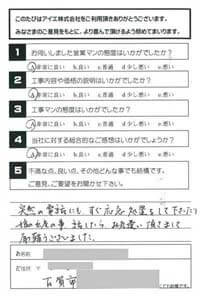 このたびはアイエス株式会社をご利用頂きありがとうございます。
みなさまのご意見をもとに、より喜んで頂けるよう努めてまいります。
1 お伺いしました営業マンの態度はいかがでしたか?
a非常に良い b良い c普通 d少し悪い e悪い
2 工事内容や価格の説明はいかがでしたか?
a非常に良い b良い c普通 d少し悪い e悪い
3 工事マンの態度はいかがでしたか?
a非常に良い b良い c普通 d少し悪い e悪い
4 当社に対する総合的なご感想はいかがでしょうか?
a非常に良い b良い c普通 d少し悪い e悪い
5 不満な点、良い点、その他どんな事でも結構です。
ご意見、ご要望をお聞かせ下さい。
突然の電話にも すぐ 応急処置をして下さったり
他の の事 話したら 頂きまして
有難うございました。
お名前
ご住所 〒
古賀市